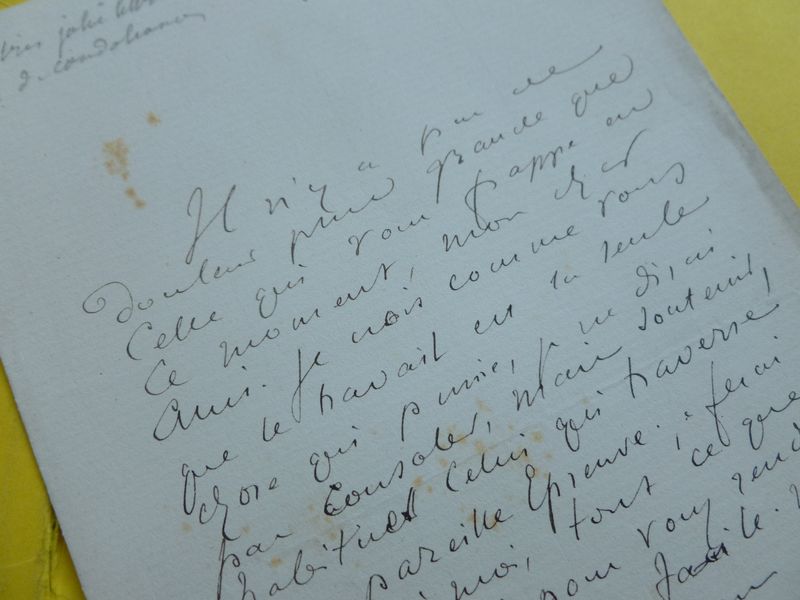 très jolie lettre
de condoléances
Il n'y a pas de
douleur plus grande que
Celle qui vous frappe en
Ce moment, mon cher
Ami. Je crois comme vous
que le travail est la seule
chose qui puisse, je ne dis, ni
pas Consoler, mais soutenir,
habituer Celui qui traverse
pareille Epreuve. je ferai
moi, tout ce que
pour vous rend
facile.